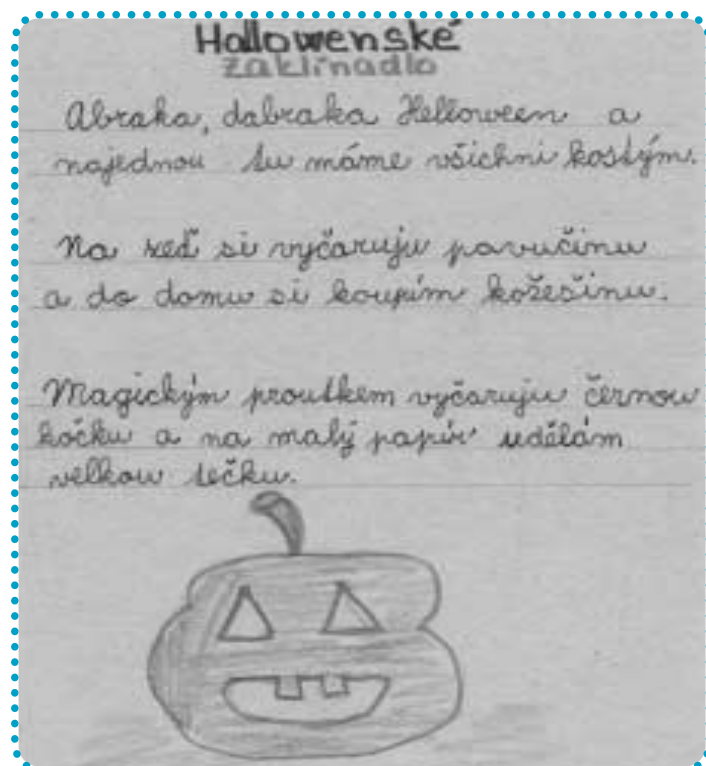 Hallowenské
zaklínadlo
Abraka, dabraka Helloween a
najednou tu máme všichni kostým.
Na zeď si vyčaruju pavučinu
a do domu si koupím kožešinu.
Magickým proutkem vyčaruju černou
kočku a na malý papír udělám
velkou tečku.